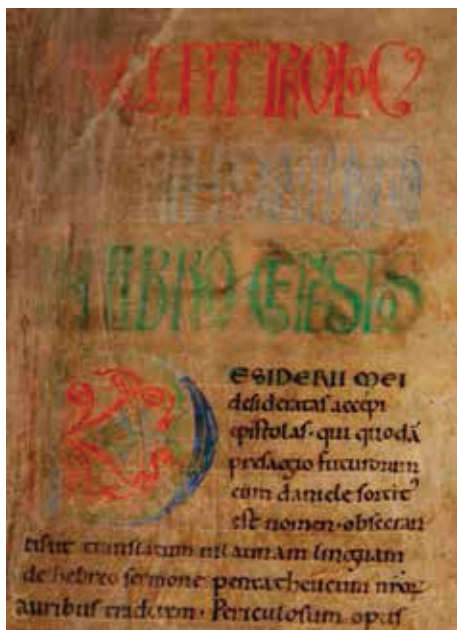 INCIPIT PROLOG
IN LIBRO GENESIS
DESIDERII MEI
desideratas accepi
epistolas· qui quodā
presagio futurorum
cum daniele sortitꝰ
est nomen· obsecran
tis ut translatum in latinam linguam
de hebreo sermone pentatheucum nr̄oꝝ
auribus traderem· Periculosum opus